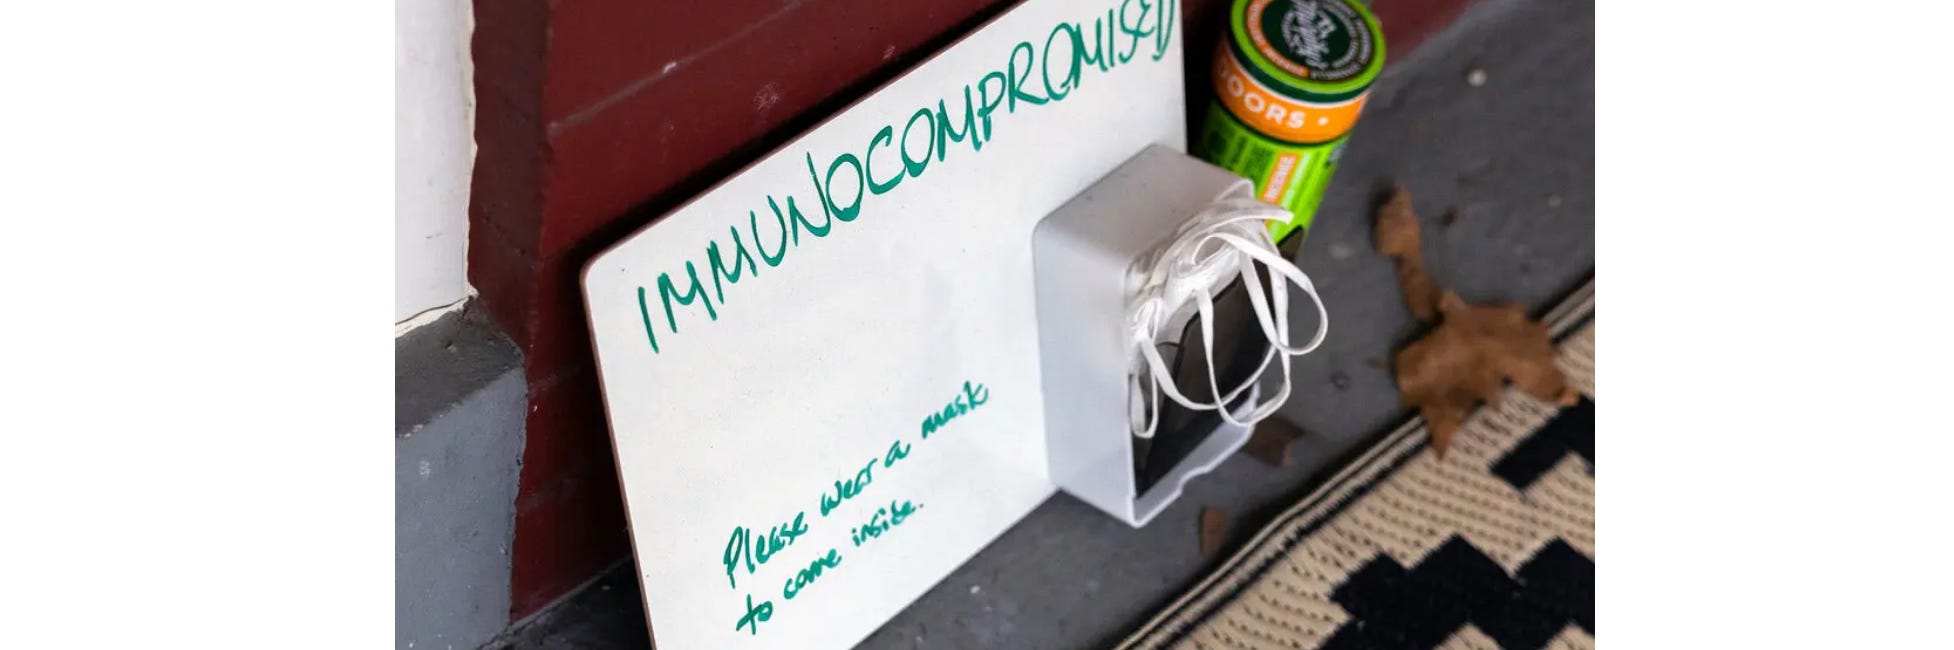 IMMUNOCOMPROMISED
Please wear a mask
to come inside.
OORS •